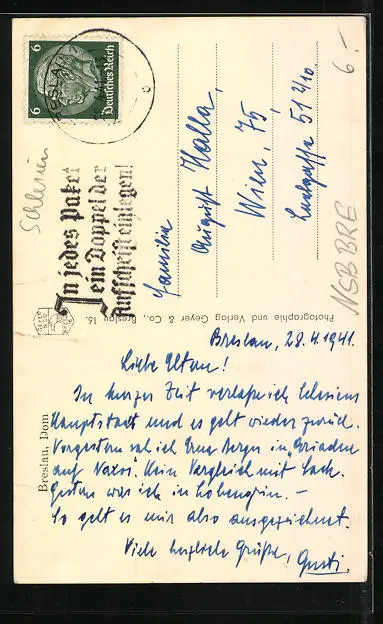 6
Deutsches Reich
6
BRESLAU
In jedes Paket
ein Doppel der
Aufschrift einlegen!
Schlesien
6.-
NSB BRE
Familie
August Halla,
Wien, 75,
51 2/10.
Photographie und Verlag Geyer & Co., Breslau 16.
Breslau, Dom
Breslau, 28.4.1941.
Liebe Eltern!
In kurzer Zeit verlasse ich Schlesiens
Hauptstadt und es geht wieder zurück.
Vorgestern sah ich Erna Berger in "Ariadne
auf Naxos". Kein Vergleich mit
Gestern war ich in Lohengrin. -
So geht es mir also ausgezeichnet.
Viele herzliche Grüße, Gusti.